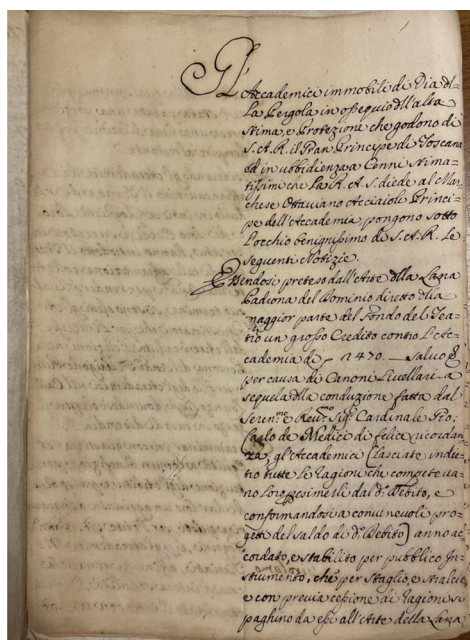 Gl'
Accademici immobili di Via di=
La Pergola in ossequio dll'alta
Stima, e Protezione che godono di
S. A. R. il Gran Principe di Toscana
ed in ubbidienza a Cenni stima=
tissimi che La R. A. S. diede al Mar=
chese Ottaviano Acciaioli Princi=
pe dell'Accademia pongono sotto
L'occhio benignissimo di S. A. R. Le
seguenti Notizie.
Essendosi preteso dall'Arte dlla Lana
Padrona del Dominio diretto dlla
maggior parte del Fondo del Tea=
tro un grosso Credito contro L'Ac=
cademia di 2470. Salvo
per causa di Canoni Livellari a
sequela dlla conduzione fatta dal
Seren.mo e Rev.mo Sig.r Cardinale Gio:
Carlo de Medici di felice ricordan=
za, gl'Accademici (lasciate indie=
tro tutte Le Ragioni che compete va=
no Loro per esimersi dal d.o Debito, e
conformandosi a convinevoli pro=
getti del saldo di d.o Debito) anno ac=
cordato, e stabilito per pubblico In=
strumento, che per staglio, e stralcio,
e con previa cessione di Ragione si
paghino da essi all'Arte della Lana